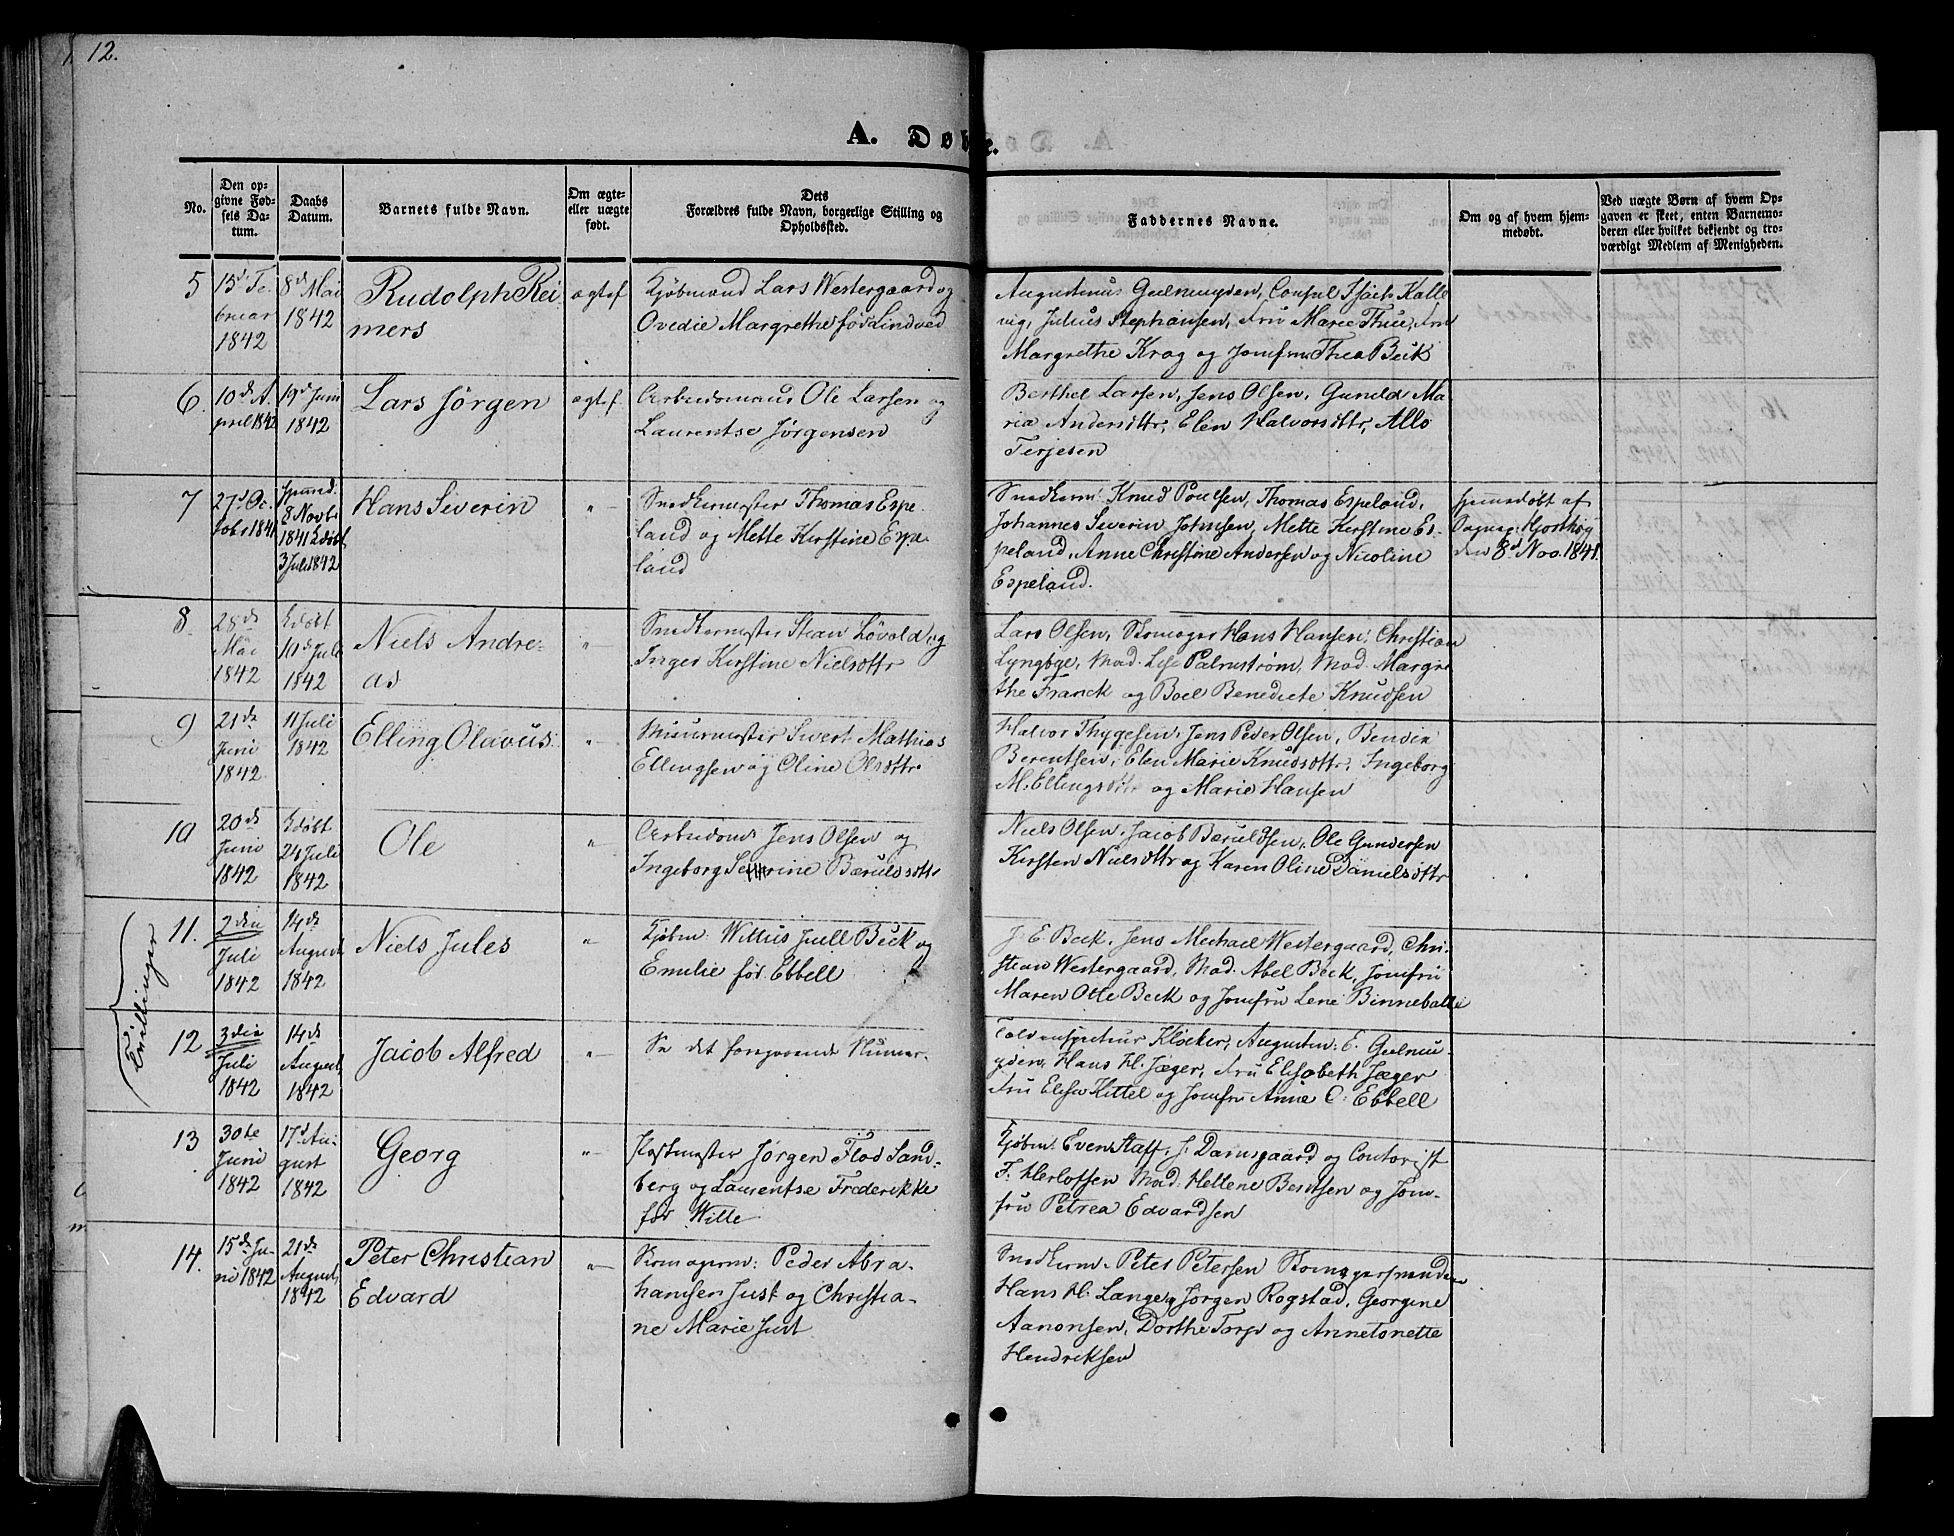 12.
A. Døbte.
No.
Den op-
givne Fød-
sels Da-
tum.
Daabs
Datum.
Barnets fulde Navn.
Om ægte-
eller uægte
født.
Dets
Forældres fulde Navn, borgerlige Stilling og
Opholdssted.
Faddernes Navne.
Om og af hvem hjem-
medøbt.
Ved uægte Børn af hvem Op-
gaven er skeet, enten Barnemo-
deren eller hvilket bekjendt og tro-
værdigt Medlem af Menigheden.
5
15d Fe-
bruar
1842
8d Mai
1842
Rudolph Rei
mers
ægtef
Kjøbmand Lars Westergaard og
Ovedie Margrethe før Lindved
Augustinus Guldmuyden, Consul Isach Kalle
vig, Julius Stephansen, Fru Maree Thue, Fru
Margrethe Krag og Jomfru Thea Beck
6.
10d A.
pril 1842
19d Juni
1842
Lars Jörgen
ægtef.
Arbeidsmand Ole Larsen og
Laurentse Jørgensen
Berthel Larsen, Jens Olsen, Gunild Ma
ria Andersdttr, Elen Halvorsdttr, Alle
Terjesen
7
27d Oc.
tobr 1841
8 Novbr
1841 Kdøbt
3 Juli 1842
Hans Severin
"
Snedkermester Thomas Espe-
land og Mette Kirstine Espe-
land
Snedkerm: Knud Poulsen, Thomas Espeland,
Johannes Severin Johnsen, Mette Kirstine Es-
peland, Anne Christine Andersen og Nicoline
Espeland.
Hjemmedøbt af
Hjorthøy
den 8d Nov. 1841.
8
28de
Mai
1842
Kdøbt
10d Juli
1842
Niels Andre-
as
"
Snedkermester Stean Lövold og
Inger Kirstine Nielsdttr
Lars Olsen, Skomager Hans Hansen, Christian
Lyngbye, Mad. Lise Palmstrøm, Mad. Margre
the Franck og Boel Benedicte Knudsen
9
21de
Juni
1842
11 Juli
1842
Elling Olavus
"
Muurmester Sivert Mathias
Ellingsen og Oline Olsdttr
Halvor Thygesen, Jens Peder Olsen, Bendix
Berentsen, Elen Marie Knudsdttr, Ingeborg
M. Ellingsdttr og Marie Hansen
10
20de
Juni
1842
Kdøbt
24 Juli
1842
Ole
"
Arbeidsmd Jens Olsen og
Ingeborg Serine Bærulsdttr
Niels Olsen, Jacob Bæruldsen, Ole Gundersen
Kirsten Nielsdttr og Karen Oline Danielsdttr
Tvillinger
11.
2den
Juli
1842
14de
August
1842
Niels Jules
"
Kjøbm. Willius Juell Beck og
Emilie før Ebbell
J. E. Beck, Jens Michael Westergaard, Chri-
stian Westergaard, Mad. Abel Beck, Jomfru
Maren Otte Beck og Jomfru Lene Binneballe
12
3die
Juli
1842
14de
August
1842
Jacob Alfred
"
Se det foregaaende Numer.
Toldinspecteur Klöcker, Augustin: E. Guldmu-
yden, Hans H. Jæger, Fru Elisabeth Jæger
Fru Elise Kittel og Jomfru Anne C: Ebbell
13
30te
Juni
1842
17d Au-
gust
1842
Georg
"
Postmester Jørgen Flod Sand-
berg og Laurentse Frederikke
før Wille
Kjøbm: Even Staff, J. Damsgaard og Contorist
F. Herlofsen, Mad: Hellene Berntsen og Jom-
fru Petrea Edvardsen
14.
15de Ju-
ni 1842
21de
August
1842
Peter Christian
Edvard
"
Skomagerm: Peder Abra-
hamsen Just og Christia-
ne Marie Just
Snedkerm. Peter Petersen, Skomagersvendene
Hans H. Lange, Jørgen Rogstad, Georgine
Aanonsen, Dorthe Torp og Annetonette
Hendriksen